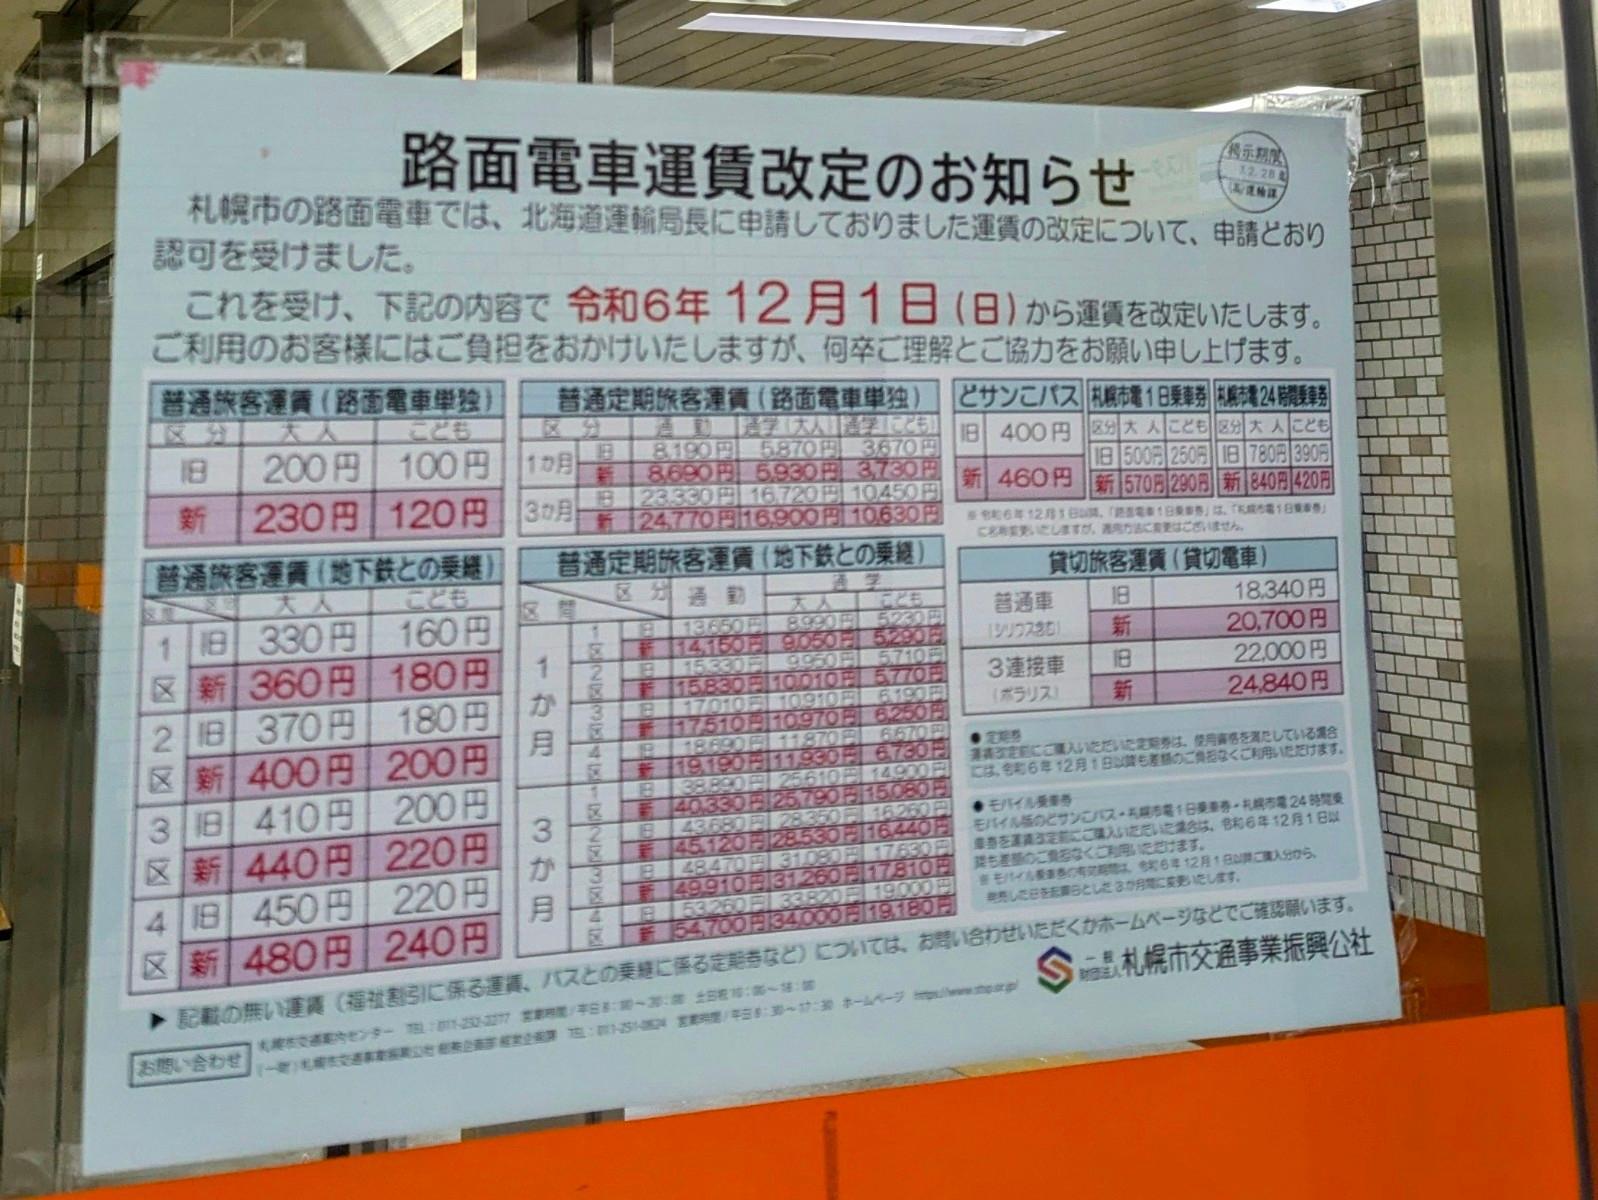 路面電車運賃改定のお知らせ
掲示期間
(高)運輸課
札幌市の路面電車では、北海道運輸局長に申請しておりました運賃の改定について、申請どおり
認可を受けました。
これを受け、下記の内容で 令和6年 12月1日(日)から運賃を改定いたします。
ご利用のお客様にはご負担をおかけいたしますが、何卒ご理解とご協力をお願い申し上げます。
普通旅客運賃(路面電車単独)
区分 大人 こども
旧 200円 100円
新 230円 120円
普通旅客運賃(地下鉄との乗継)
区間 区分 大人 こども
1区 旧 330円 160円
新 360円 180円
2区 旧 370円 180円
新 400円 200円
3区 旧 410円 200円
新 440円 220円
4区 旧 450円 220円
新 480円 240円
普通定期旅客運賃(路面電車単独)
区分 通勤 通学(大人) 通学(こども)
1か月 旧 8,190円 5,870円 3,670円
新 8,690円 5,930円 3,730円
3か月 旧 23,330円 16,720円 10,450円
新 24,770円 16,900円 10,630円
普通定期旅客運賃(地下鉄との乗継)
区間 区分 通勤 通学
大人 こども
1か月
1区 旧 13,650円 8,990円 5,230円
新 14,150円 9,050円 5,290円
2区 旧 15,330円 9,950円 5,710円
新 15,830円 10,010円 5,770円
3区 旧 17,010円 10,910円 6,190円
新 17,510円 10,970円 6,250円
4区 旧 18,690円 11,870円 6,670円
新 19,190円 11,930円 6,730円
3か月
1区 旧 38,890円 25,610円 14,900円
新 40,330円 25,790円 15,080円
2区 旧 43,680円 28,350円 16,260円
新 45,120円 28,530円 16,440円
3区 旧 48,470円 31,080円 17,630円
新 49,910円 31,260円 17,810円
4区 旧 53,260円 33,820円 19,000円
新 54,700円 34,000円 19,180円
どサンこパス
旧 400円
新 460円
札幌市電1日乗車券
区分 大人 こども
旧 500円 250円
新 570円 290円
札幌市電24時間乗車券
区分 大人 こども
旧 780円 390円
新 840円 420円
※令和6年12月1日以降、「路面電車1日乗車券」は、「札幌市電1日乗車券」
に名称変更いたしますが、適用方法に変更はございません。
貸切旅客運賃(貸切電車)
普通車 旧 18,340円
(シリウス含む) 新 20,700円
3連接車 旧 22,000円
(ポラリス) 新 24,840円
● 定期券
運賃改定前にご購入いただいた定期券は、使用資格を満たしている場合
には、令和6年12月1日以降も差額のご負担なくご利用いただけます。
● モバイル乗車券
モバイル版のどサンこパス・札幌市電1日乗車券・札幌市電24時間乗
車券を運賃改定前にご購入いただいた場合は、令和6年12月1日以
降も差額のご負担なくご利用いただけます。
※モバイル乗車券の有効期間は、令和6年12月1日以降ご購入分から、
発売した日を起算日とした3か月間に変更いたします。
▶ 記載の無い運賃(福祉割引に係る運賃、バスとの乗継に係る定期券など)については、お問い合わせいただくかホームページなどでご確認願います。
お問い合わせ
札幌市交通案内センター TEL:011-232-2277 営業時間/平日8:00~20:00 土日祝10:00~18:00
(一財)札幌市交通事業振興公社 総務企画部 経営企画課 TEL:011-251-0824 営業時間/平日8:30~17:30 ホームページ https://www.stsp.or.jp/
一般
財団法人 札幌市交通事業振興公社